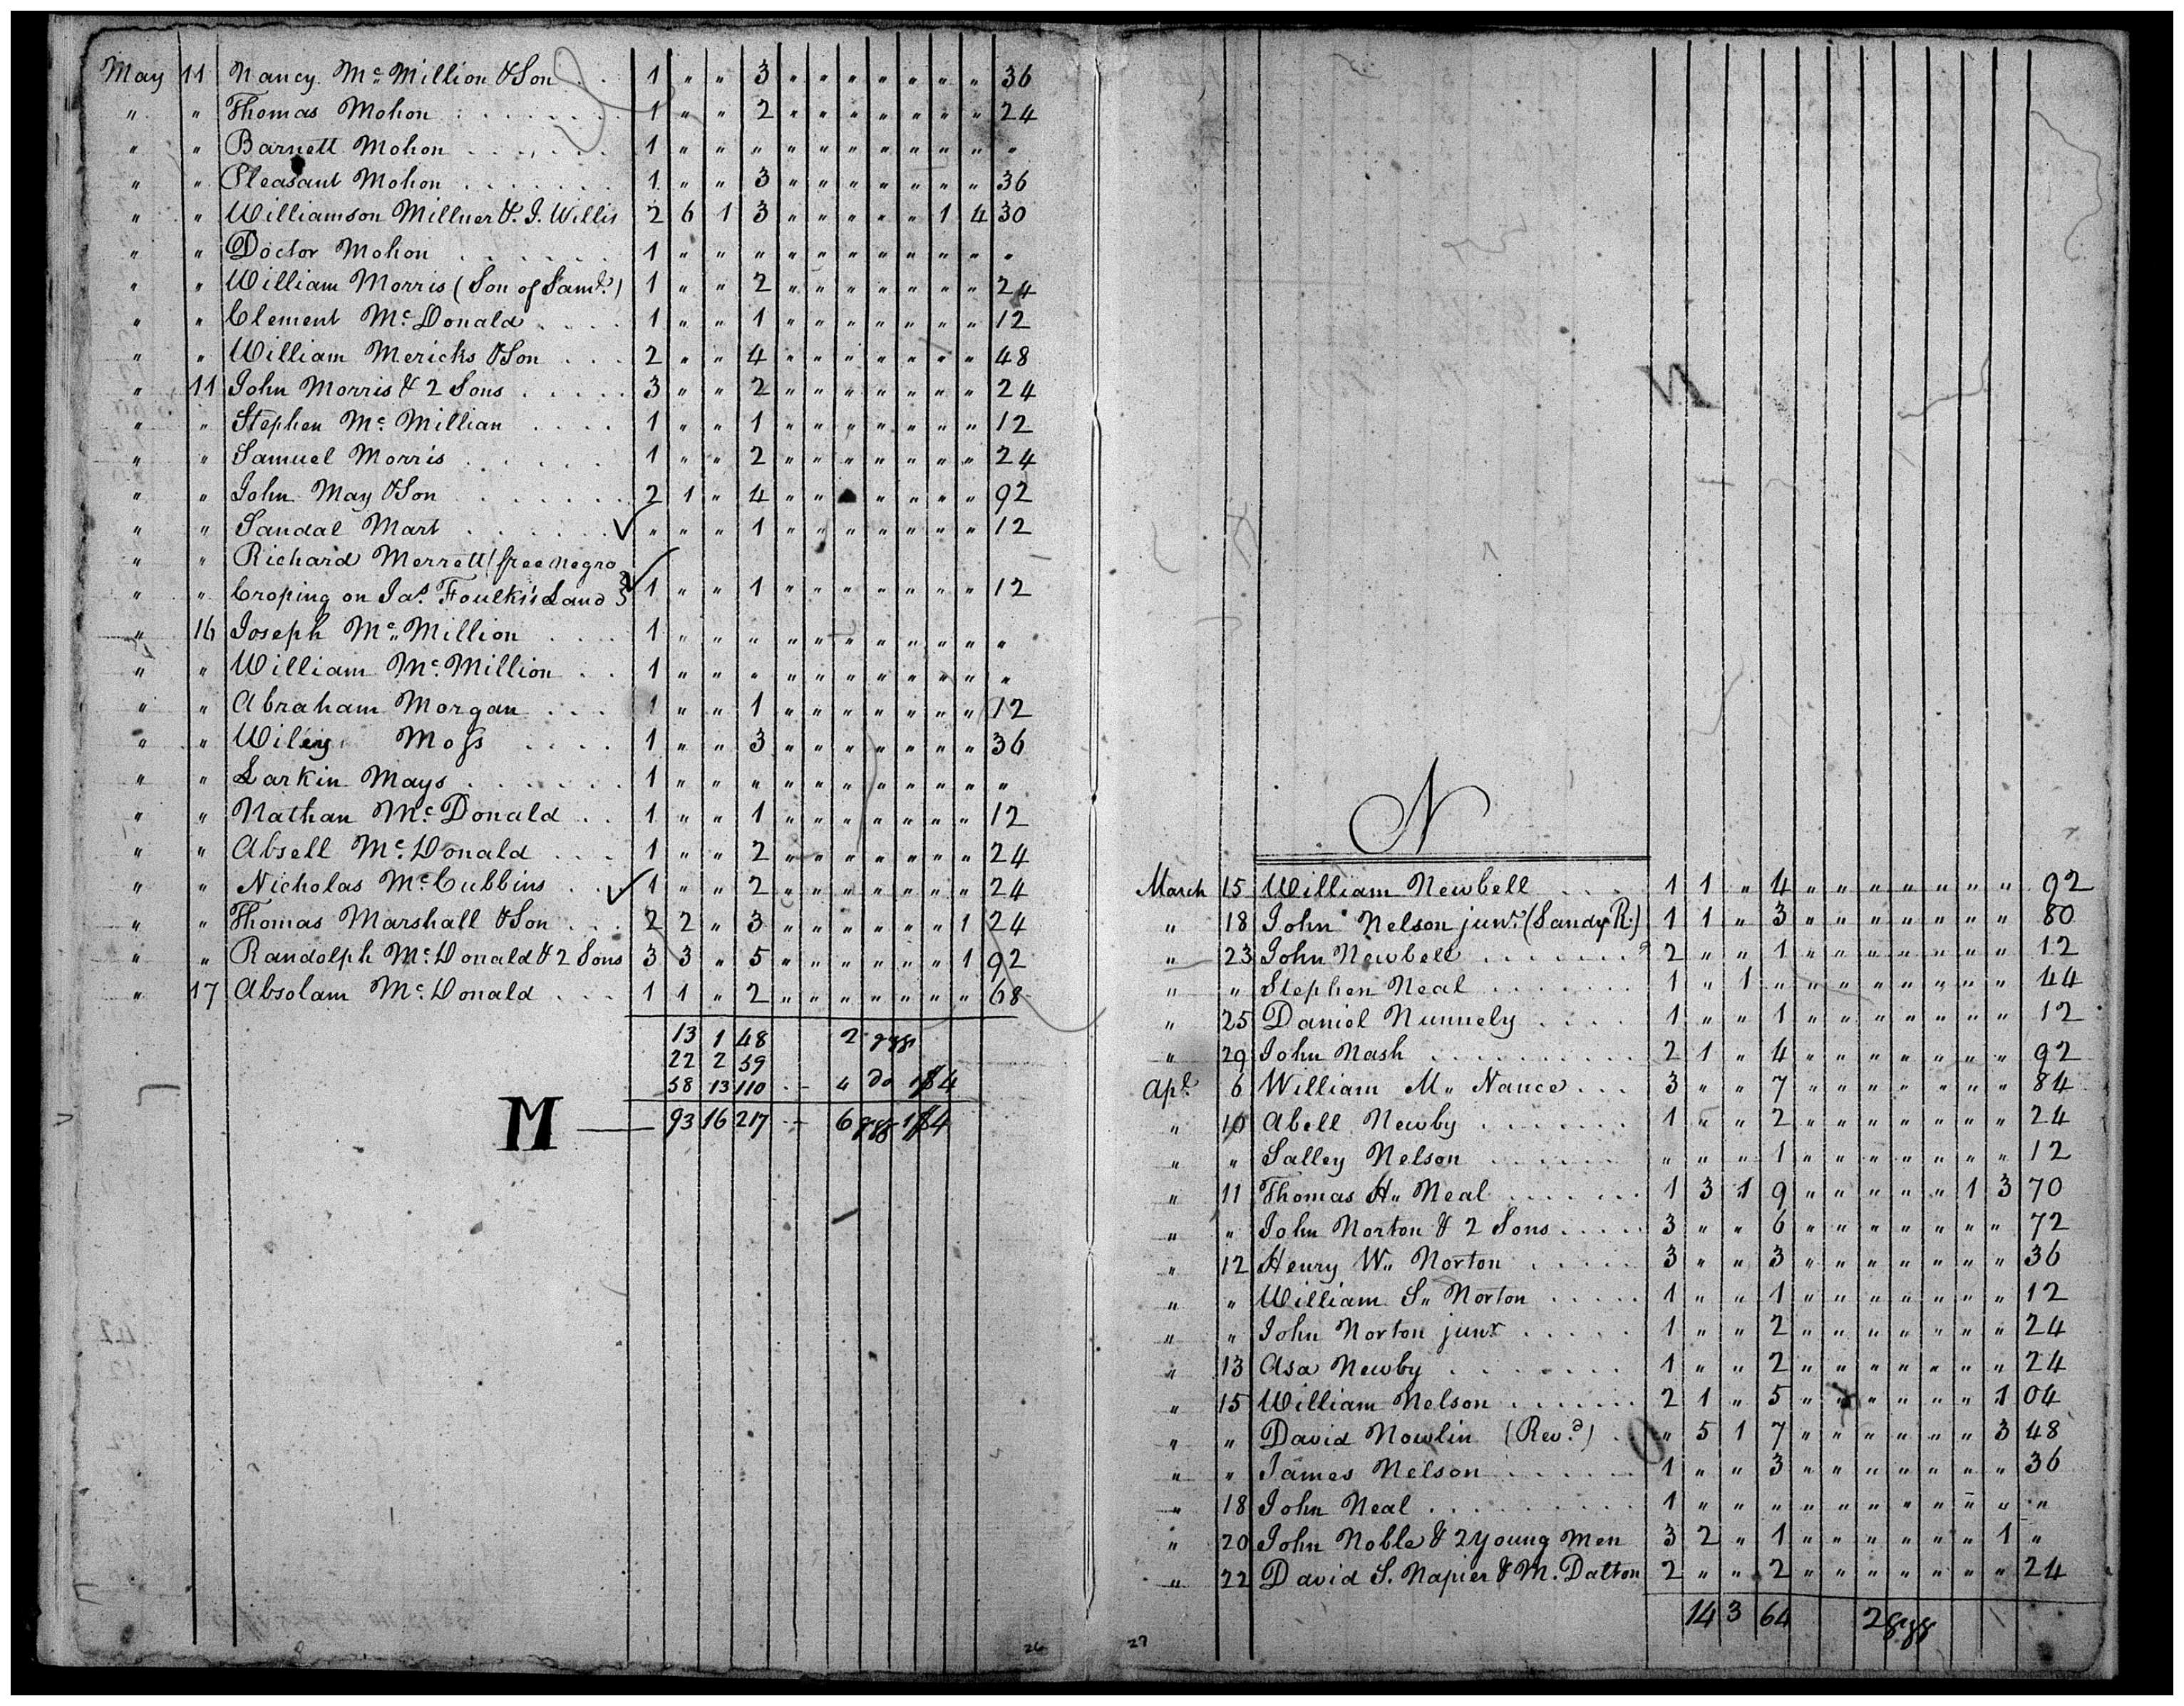 May 11 Nancy McMillion & Son . . 1 " " 3 " " " " " " " 36
" " Thomas Mohon . . . . . . . 1 " " 2 " " " " " " " 24
" " Barnett Mohon . . . . . . 1 " " " " " " " " " " "
" " Pleasant Mohon . . . . . . 1 " " 3 " " " " " " " 36
" " Williamson Millner & J. Willis 2 6 1 3 " " " " " 1 4 30
" " Doctor Mohon . . . . . . 1 " " " " " " " " " " "
" " William Morris (Son of Saml.) 1 " " 2 " " " " " " " 24
" " Clement McDonald . . . . 1 " " 1 " " " " " " " 12
" " William Mericks & Son . . . 2 " " 4 " " " " " " " 48
" 11 John Morris & 2 Sons . . . . . 3 " " 2 " " " " " " " 24
" " Stephen Mc. Millian . . . . 1 " " 1 " " " " " " " 12
" " Samuel Morris . . . . . 1 " " 2 " " " " " " " 24
" " John May & Son . . . . . . 2 1 " 4 " " " " " " 92
" " Sandal Mart . . . . . . ✓ " " " 1 " " " " " " " 12
" " Richard Merrett (free negro
" " Croping on Jas. Foulkis Land 3 ✓ 1 " " 1 " " " " " " " 12
" 16 Joseph Mc. Million . . . . 1 " " " " " " " " " " "
" " William Mc. Million . . 1 " " " " " " " " " " "
" " Abraham Morgan . . . 1 " " 1 " " " " " " " 12
" " Wiley Moss . . . . 1 " " 3 " " " " " " " 36
" " Larkin Mays . . . . . . 1 " " " " " " " " " " "
" " Nathan Mc. Donald . . 1 " " 1 " " " " " " " 12
" " Absell Mc. Donald . . . 1 " " 2 " " " " " " " 24
" " Nicholas Mc. Cubbins . . ✓ 1 " " 2 " " " " " " " 24
" " Thomas Marshall & Son . . . 2 2 " 3 " " " " " " 1 24
" " Randolph Mc. Donald & 2 Sons 3 3 " 5 " " " " " " 1 92
" 17 Absolam Mc. Donald . . . 1 1 " 2 " " " " " " " 68
13 1 48 2 ggs
22 2 59
58 13 110 - - 4 do 1 $4
M — 93 16 217 - - 6 ggs 1 $4
26
N
March 15 William Newbell . . . . 1 1 " 4 " " " " " " " 92
" 18 John Nelson junr. (Sandy R.) 1 1 " 3 " " " " " " " 80
" 23 John Newbell . . . . . . . 2 " " 1 " " " " " " " 12
" " Stephen Neal . . . . . . . 1 " 1 " " " " " " " " 44
" 25 Daniel Nunnely . . . . 1 " " 1 " " " " " " " 12
" 29 John Nash . . . . . . . . . 2 1 " 4 " " " " " " " 92
Apl. 6 William M,, Nance . . . 3 " " 7 " " " " " " " 84
" 10 Abell Newby . . . . . . . 1 " " 2 " " " " " " " 24
" " Salley Nelson . . . . . . " " " 1 " " " " " " " 12
" 11 Thomas H,, Neal . . . . . . 1 3 1 9 " " " " " 1 3 70
" " John Norton & 2 Sons . . . . . 3 " " 6 " " " " " " " 72
" 12 Henry W,, Norton . . . . . 3 " " 3 " " " " " " " 36
" " William S,, Norton . . . . . 1 " " 1 " " " " " " " 12
" " John Norton junr . . . . . 1 " " 2 " " " " " " " 24
" 13 Asa Newby . . . . . . . 1 " " 2 " " " " " " " 24
" 15 William Nelson . . . . . . . 2 1 " 5 " " " " " " 1 04
" " David Nowlin (Revd.) . . " 5 1 7 " " " " " " 3 48
" " James Nelson . . . . . . 1 " " 3 " " " " " " " 36
" 18 John Neal . . . . . . . . . 1 " " " " " " " " " " "
" 20 John Noble & 2 young Men 3 2 " 1 " " " " " " 1 "
" 22 David S. Napier & M. Dalton 2 " " 2 " " " " " " " 24
14 3 64 2 ggs
27